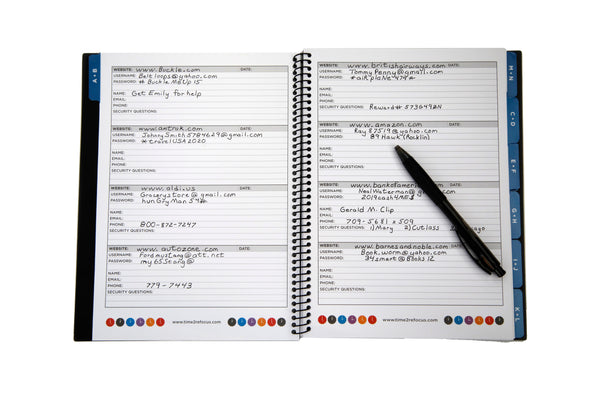 A • B
WEBSITE: www.Buckle.com DATE:
USERNAME: Beltloops@yahoo.com
PASSWORD: #Buckle MeUp 15
NAME: Get Emily for help
EMAIL:
PHONE:
SECURITY QUESTIONS:
WEBSITE: www.amtrak.com DATE:
USERNAME: JohnnySmith5784629@gmail.com
PASSWORD: *travelUSA2020
NAME:
EMAIL:
PHONE:
SECURITY QUESTIONS:
WEBSITE: www.aldi.us DATE:
USERNAME: Grocerystore@gmail.com
PASSWORD: hunG7yMan
NAME:
EMAIL:
PHONE: 800-872-7247
SECURITY QUESTIONS:
WEBSITE: www.autozone.com DATE:
USERNAME: Fordmustang@att.net
PASSWORD: my65Stang@
NAME:
EMAIL:
PHONE: 779-7443
SECURITY QUESTIONS:
www.time2refocus.com
WEBSITE: www.britishairways.com DATE:
USERNAME: TommyPenny@gmail.com
PASSWORD:
NAME:
EMAIL:
PHONE:
SECURITY QUESTIONS: Reward# 5730492N
WEBSITE: www.amazon.com DATE:
USERNAME: Ray87519@yahoo.com
PASSWORD: 89 Hawk (Rocklin)
NAME:
EMAIL:
PHONE:
SECURITY QUESTIONS:
WEBSITE: DATE:
USERNAME: NealWaterman@
PASSWORD:
NAME: Gerald M. Clip
EMAIL:
PHONE: 709-5681 x 509
SECURITY QUESTIONS: 1) Mary 2) Cutlass
WEBSITE: www.barnesandnoble.com DATE:
USERNAME: Book.worm@yahoo.com
PASSWORD: 34smart@B00ks12
NAME:
EMAIL:
PHONE:
SECURITY QUESTIONS:
www.time2refocus.com
M • N
C • D
E • F
G • H
I • J
K • L